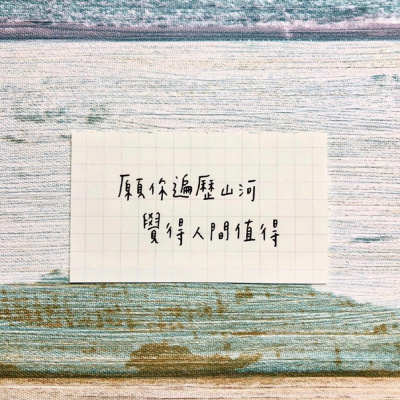 願你遍歷山河
覺得人間值得